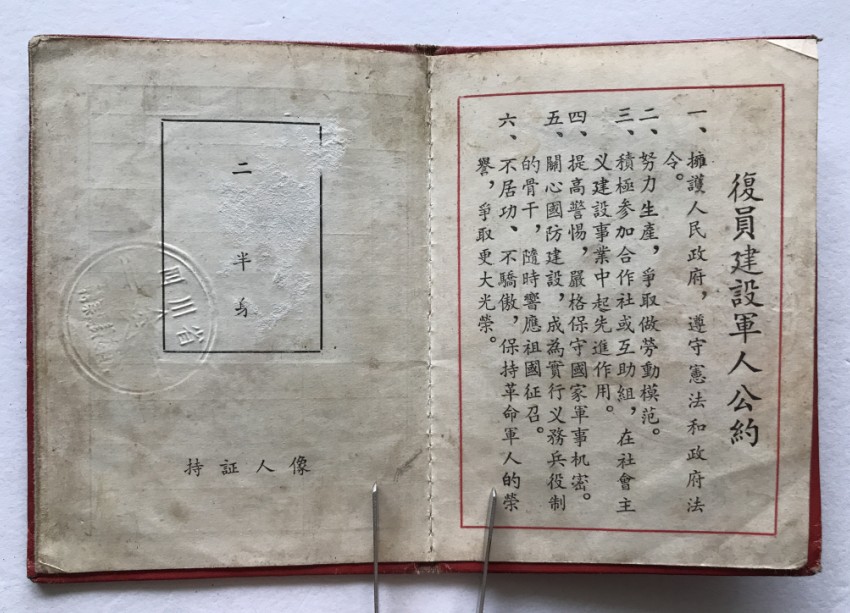 二
半
身
四川省
持証人像
復員建設軍人公約
一、擁護人民政府，遵守憲法和政府法
令。
二、努力生產，爭取做勞動模范。
三、積極參加合作社或互助組，在社會主
义建設事業中起先進作用。
四、提高警惕，嚴格保守國家軍事机密。
五、關心國防建設，成為實行义務兵役制
的骨干，隨時響應祖國征召。
六、不居功、不驕傲，保持革命軍人的荣
譽，爭取更大光荣。